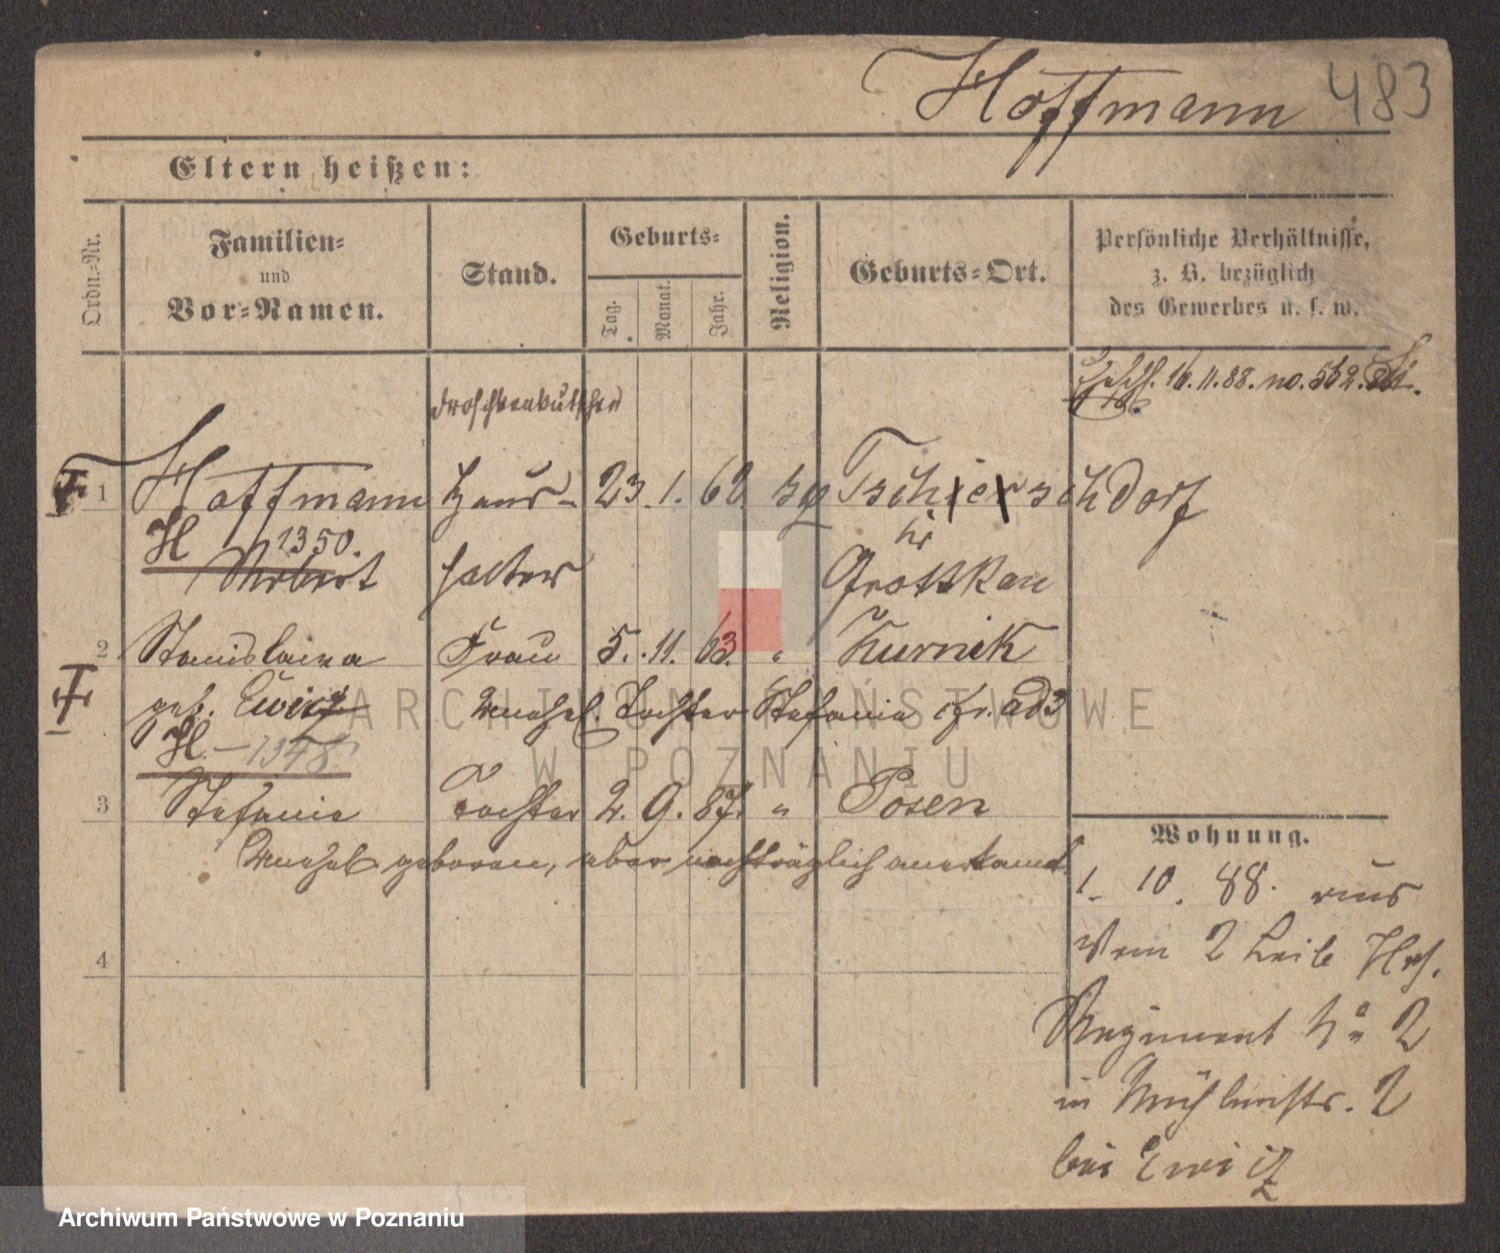 Hoffmann 483
Eltern heißen:
Ordn.-Nr.
Familien-
und
Vor-Namen.
Stand.
Geburts-
Tag.
Monat.
Jahr.
Religion.
Geburts-Ort.
Persönliche Verhältnisse,
z. B. bezüglich
des Gewerbes u. s. w.
16.11.88. no. 562.
Droschkenkutscher
1 Hoffmann Haus- 23. 1. 62. Tschierschdorf
H 1350.
halter Grottkau
2 Stanislawa Frau 5. 11. 63. " Kurnik
geb. Ewicz unehel. Tochter Stefania cfr. ad 3
H - 1348.
3 Stefanie Tochter 2. 9. 87. " Posen
unehel geboren, aber nachträglich anerkannt.
4
Wohnung.
1. 10. 88. aus
vom 2 Leib Hus.
Regiment No 2
in Mühlenstr. 2
bei Ewicz
ARCHIWUM PAŃSTWOWE
W POZNANIU
Archiwum Państwowe w Poznaniu